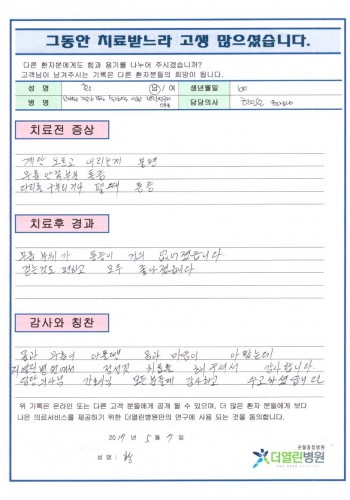 그동안 치료받느라 고생 많으셨습니다.
다른 환자분에게도 힘과 용기를 나누어 주시겠습니까?
고객님이 남겨주시는 기록은 다른 환자분들의 희망이 됩니다.
성 명 남 / 여 생년월일 60
병 명 담당의사
치료전 증상
계단 오르고 내리는게 불편
무릎 안쪽부분 통증
다리를 구부리거나 펼때 통증
치료후 경과
무릎 부위가 통증이 거의 없어졌습니다
걷는것도 편하고 모두 좋아졌습니다
감사와 칭찬
몸과 마음이 아플때
더열린병원에서 정성껏 치료를 해주셔서 감사합니다.
담당의사님 간호사님 모든분들께 감사하고 수고하셨습니다
위 기록은 온라인 또는 다른 고객 분들에게 공개 될 수 있으며, 더 많은 환자 분들에게 보다
나은 의료서비스를 제공하기 위한 더열린병원만의 연구에 사용 되는 것을 동의합니다.
2017 년 5 월 7 일
성 명 :
관절중점병원
더열린병원